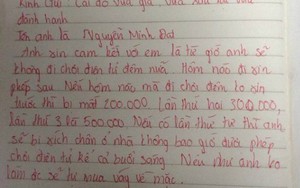 đánh hạnh
anh là Nguyễn Minh Đạt
Anh xin cam kết với em là từ giờ anh sẽ
không đi chơi điện tử đêm nữa. Hôm nào đi xin
phép sau. Nếu hôm nào mà đi chơi đêm ko xin
trước thì bị mất 200.000. Lần thứ hai 300.000,
lần thứ 3 là 500.000. Nếu có lần thứ tư thì anh
sẽ bị xích chân ở nhà không bao giờ được phép
chơi điện tử kể cả buổi sáng. Nếu như anh ko
làm đc sẽ tự mua váy về mặc.